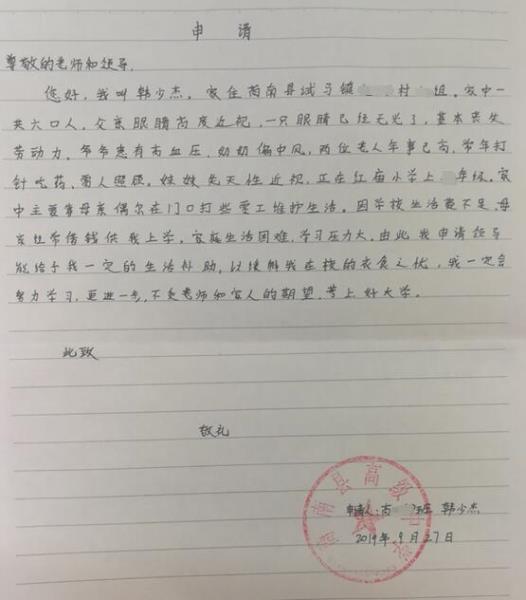 申 请
尊敬的老师和领导.
您好,我叫韩少杰,家住商南县试马镇 村 组,家中一
共六口人,父亲眼睛高度近视,一只眼睛已经无光了,基本丧失
劳动力,爷爷患有高血压,奶奶偏中风,两位老人年事已高,常年打
针吃药、需人照顾。妹妹先天性近视,正在红庙小学上 年级。家
中主要靠母亲偶尔在门口打些零工维护生活。因学校生活费不足,母
亲经常借钱供我上学。家庭生活困难,学习压力大,由此我申请领导
能给予我一定的生活补助,以缓解我在校的衣食之忧,我一定会
努力学习,更进一步,不负老师和家人的期望,考上好大学。
此致
敬礼
申请人:高 班 韩少杰
2019年.9月27日
商南县高级中学